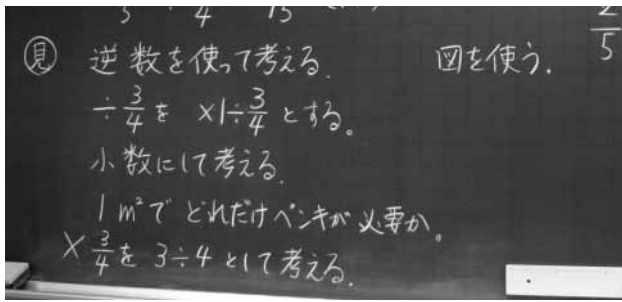 ㋷ 逆数を使って考える. 図を使う.
÷3/4を ×1÷3/4とする。
小数にして考える.
1m²でどれだけペンキが必要か。
×3/4を 3÷4として考える.
2/5